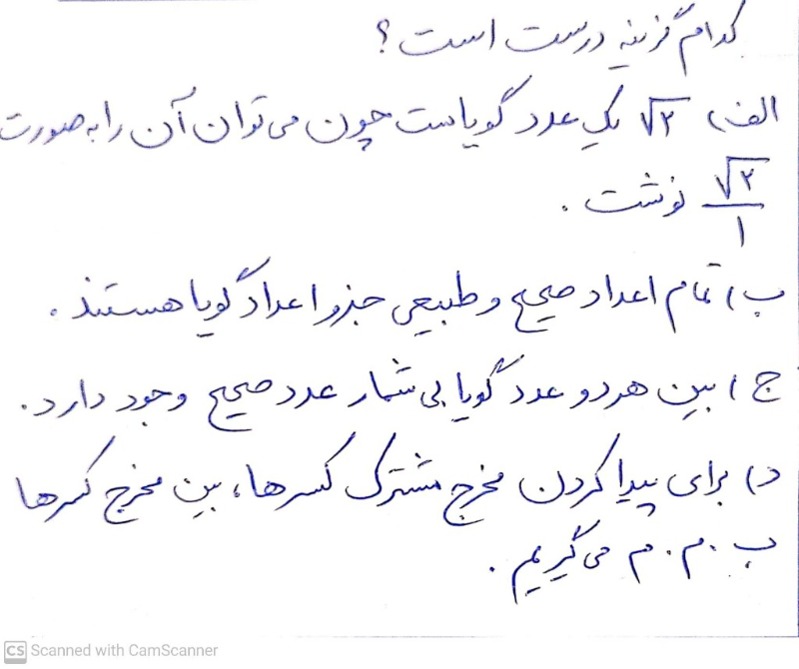 کدام گزینه درست است؟
الف) √۲ یک عدد گویاست چون می‌توان آن را به صورت
√۲/۱ نوشت.
ب) تمام اعداد صحیح و طبیعی جزو اعداد گویا هستند.
ج) بین هر دو عدد گویا بی‌شمار عدد صحیح وجود دارد.
د) برای پیدا کردن مخرج مشترک کسرها، بین مخرج کسرها
ب.م.م می‌گیریم.
CS Scanned with CamScanner